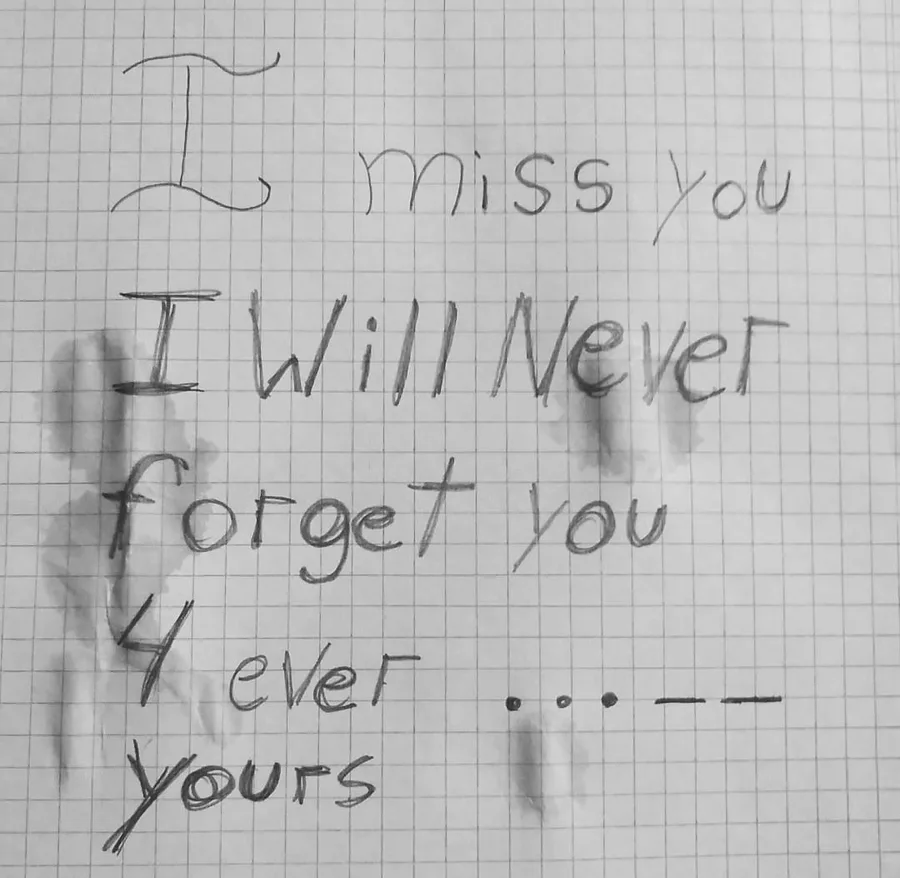 I miss you
I Will Never
forget you
4 ever ... — —
yours